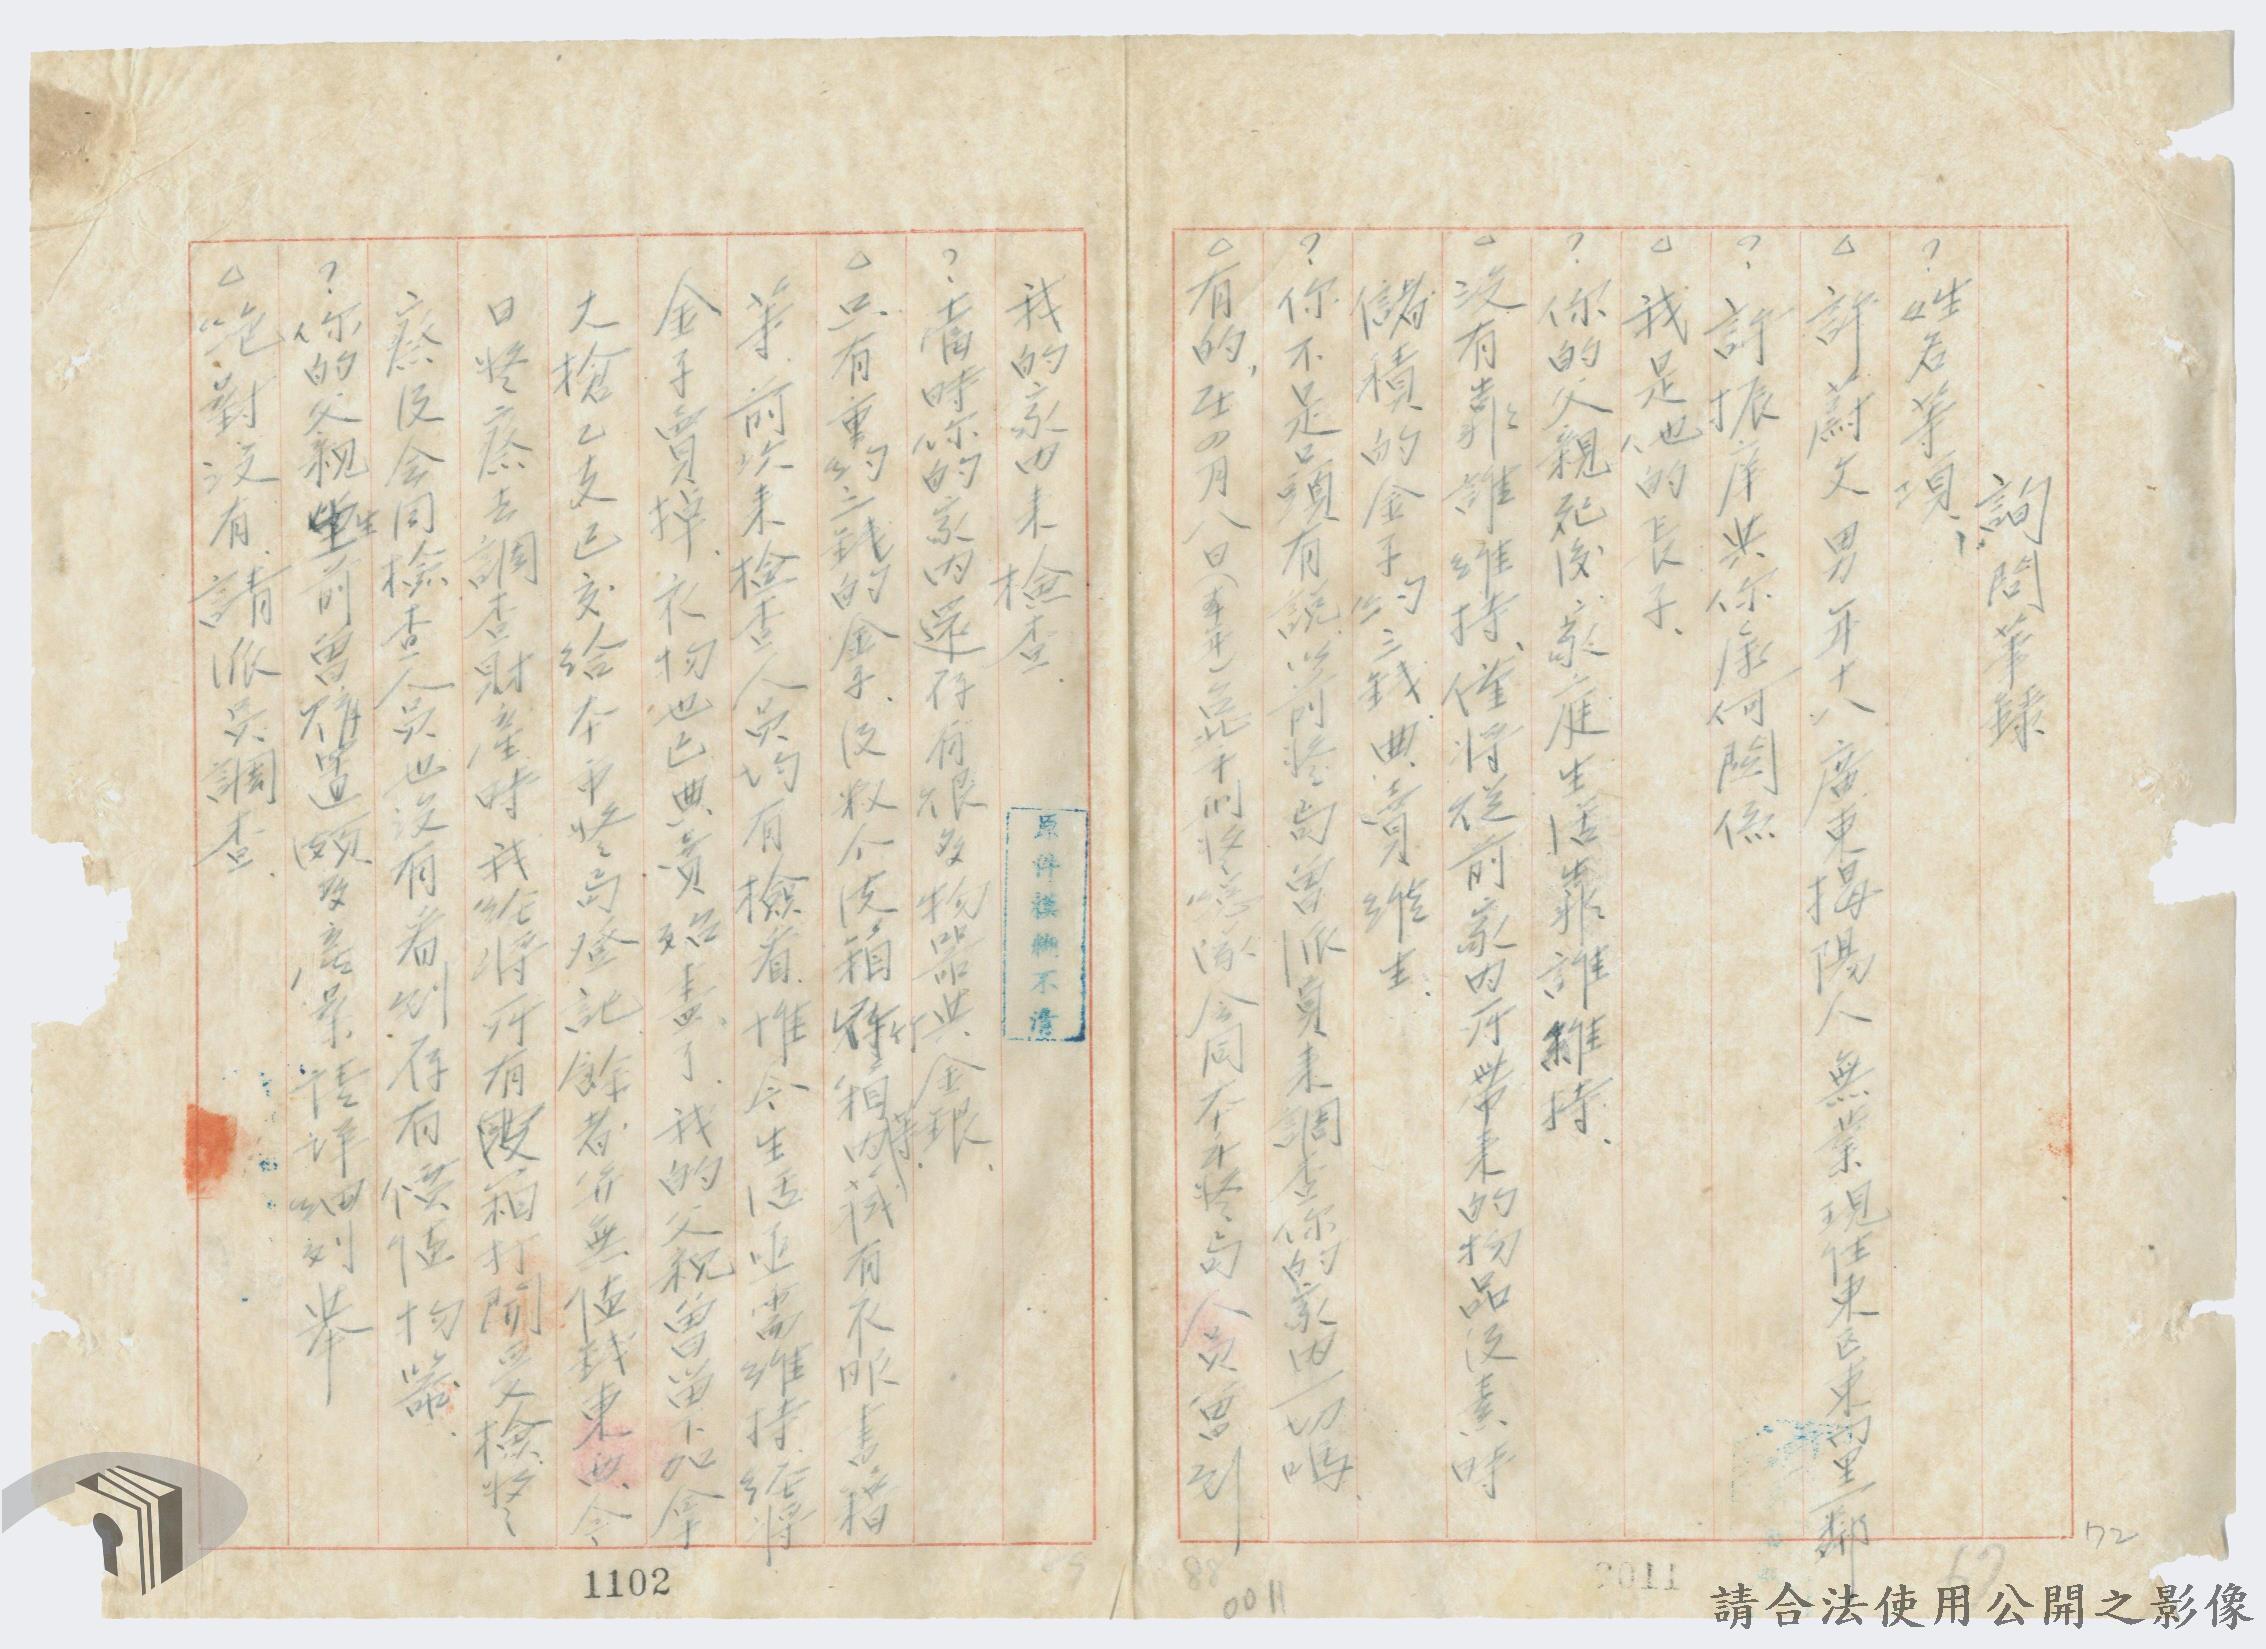 詢問筆錄
？姓名等項、
△許蔚文男年十八廣東揭陽人無業現住東區東門里一鄰
？許振庠與你係何關係
△我是他的長子、
？你的父親死後家庭生活靠誰維持、
△沒有靠誰維持、僅將從前家內所帶來的物品及素時
儲積的金子約三錢典賣維生、
？你不是口頭有說以前警局曾派員來調查你的家內一切嗎、
△有的，在四月八日（本年）
會同本市警局人員曾到
我的家内来檢查、
？當時你的家內還存有很多物器與金銀、
△只有重約三錢的金子、及数个皮箱 竹箱内藏有衣服書籍
等、前次来檢查人員均有檢看、惟今生活亟需維持、經將
金子賣掉、衣物也已典賣殆盡了、我的父親曾留下加拿
大槍乙支已交給本市警局登記、餘者并無值錢東西、令
日警察去調查財産時我經將所有皮箱打開受檢、警
察及会同檢查人員也沒有看到存有價值物器、
？你的父親生前曾
詳細列舉
△絶對沒有、請派員調查、
原件模糊不清
1102
1101
0011
88
72
請合法使用公開之影像